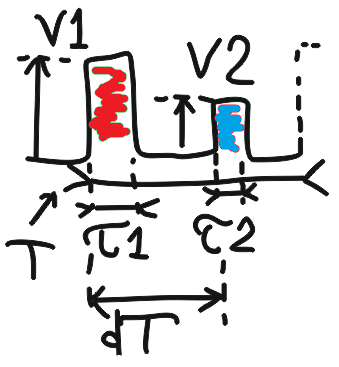 V1
V2
T
τ1
τ2
dT